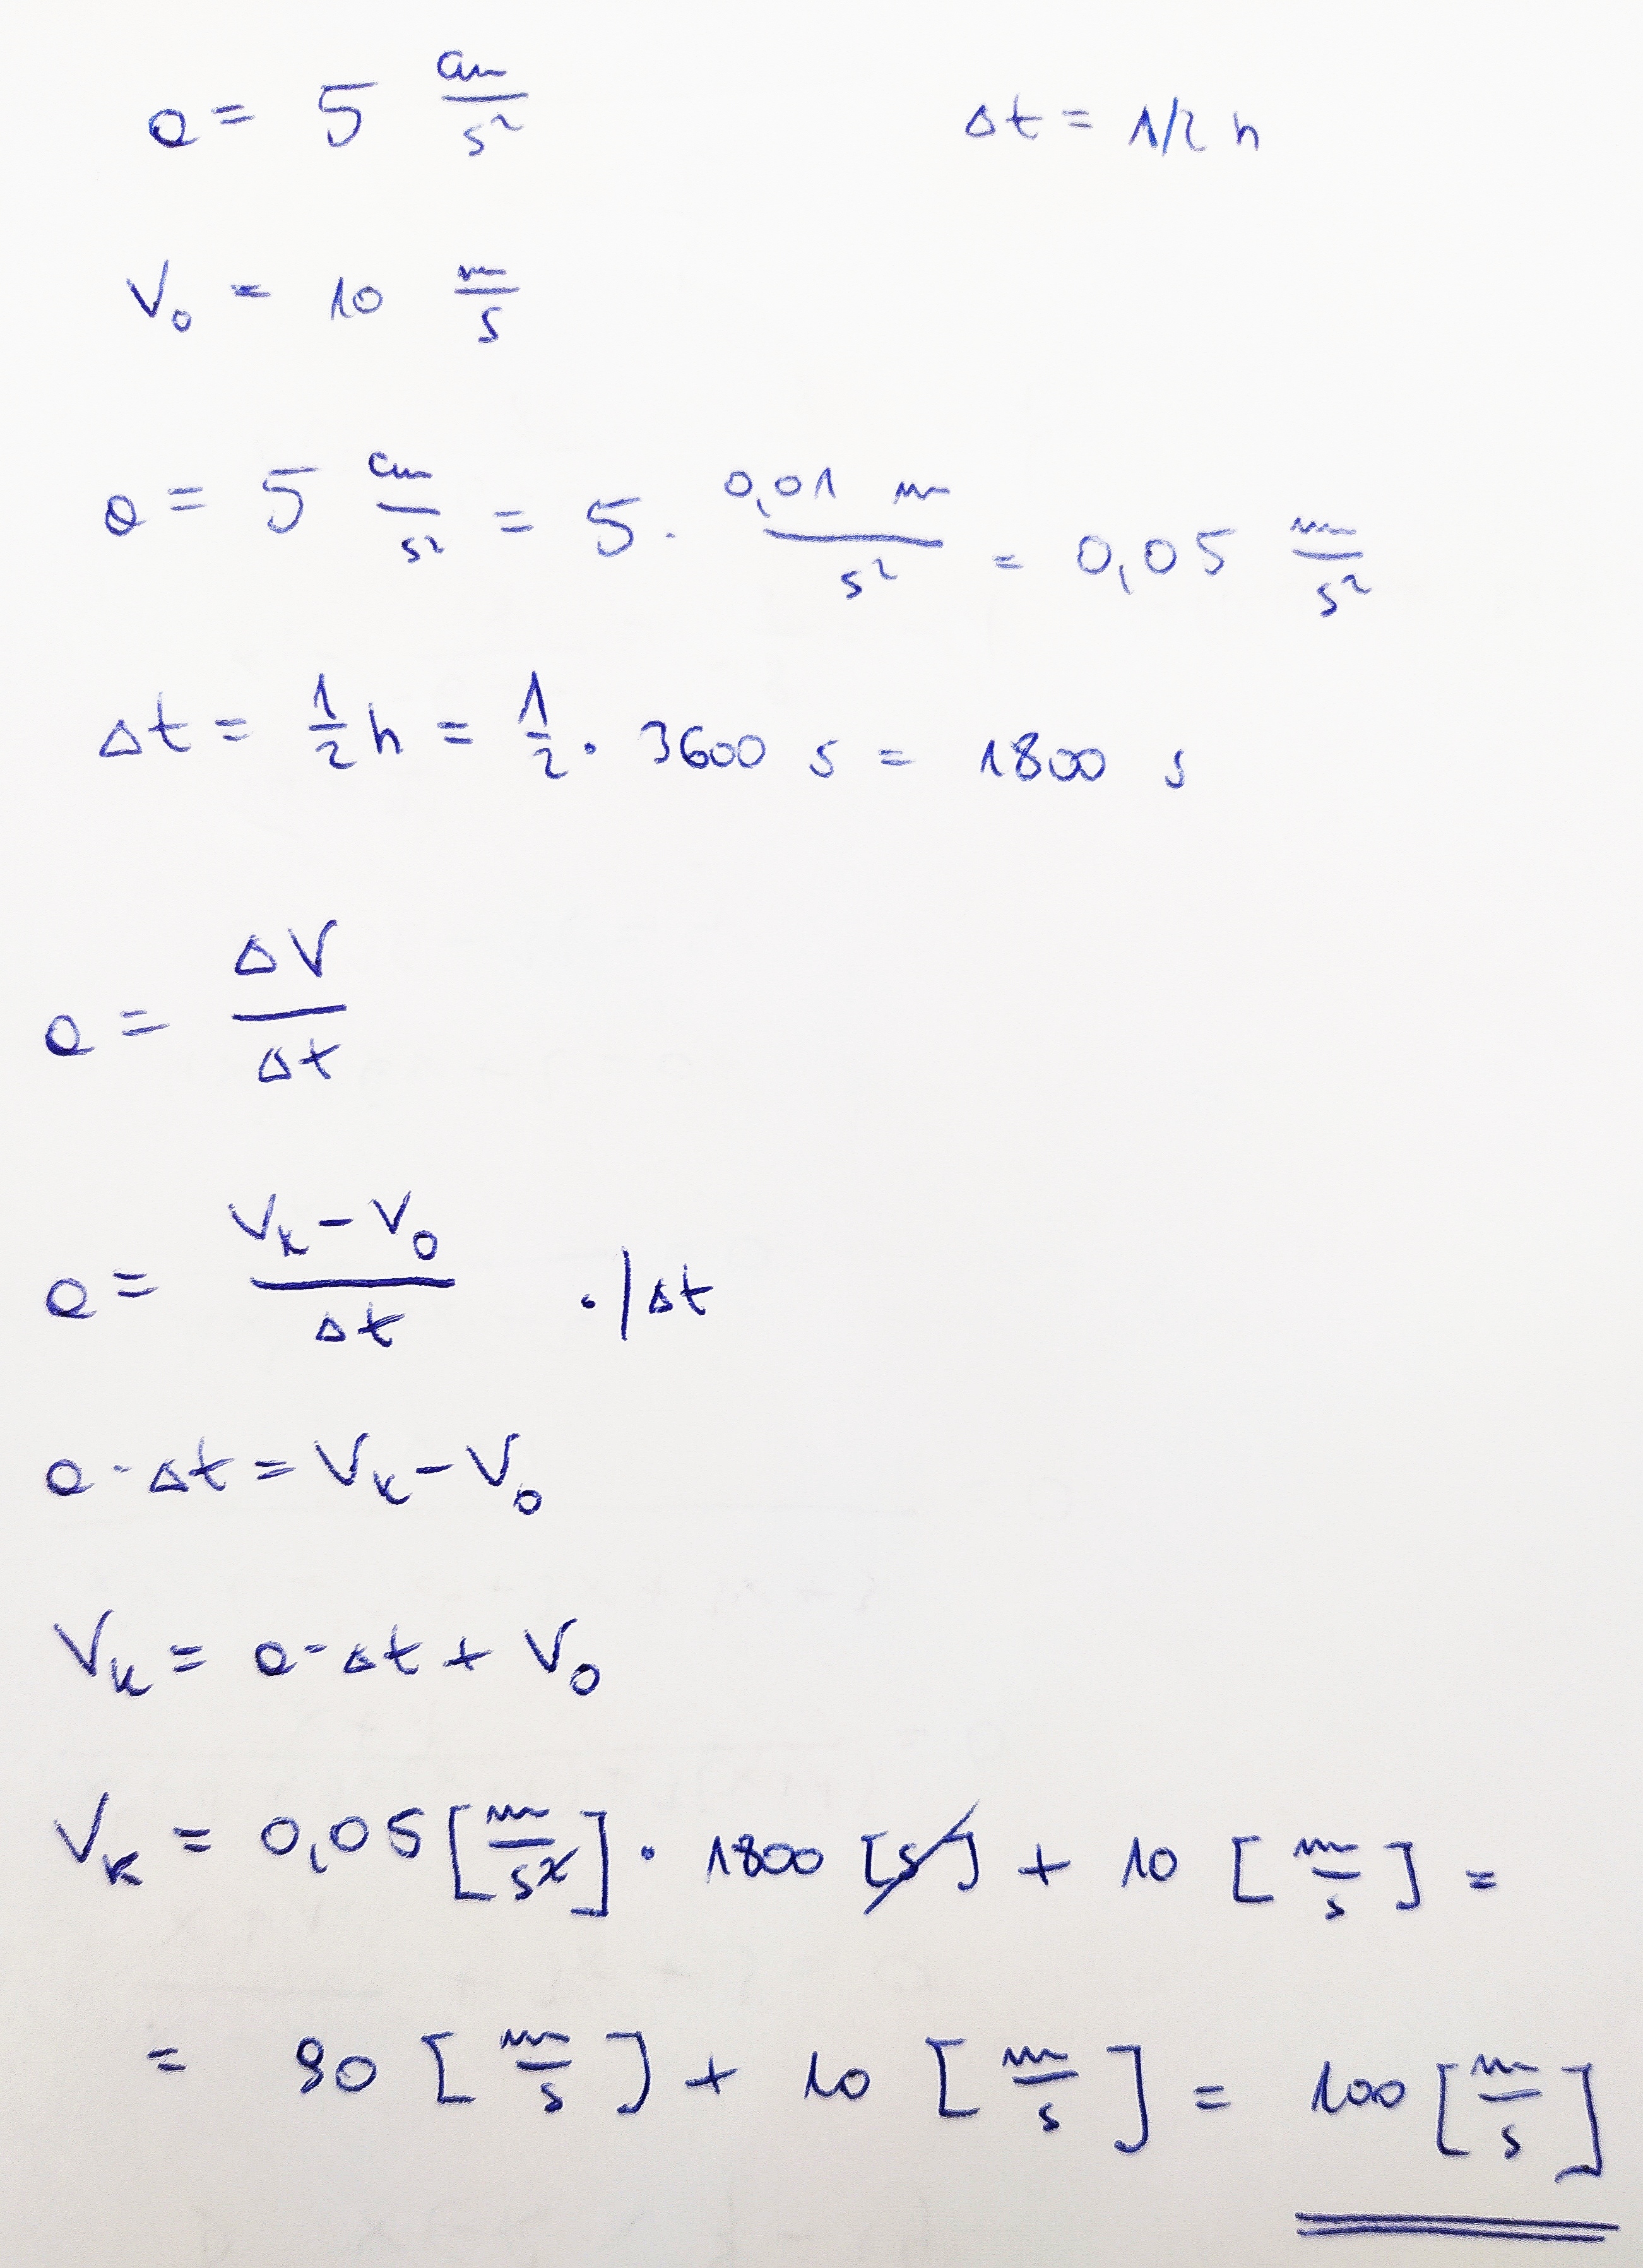 a = 5 cm/s² Δt = 1/2 h
V₀ = 10 m/s
a = 5 cm/s² = 5 · 0,01 m/s² = 0,05 m/s²
Δt = 1/2 h = 1/2 · 3600 s = 1800 s
a = ΔV/Δt
a = (Vₖ - V₀)/Δt ·/Δt
a · Δt = Vₖ - V₀
Vₖ = a · Δt + V₀
Vₖ = 0,05 [m/s²] · 1800 [s] + 10 [m/s] =
= 90 [m/s] + 10 [m/s] = 100 [m/s]